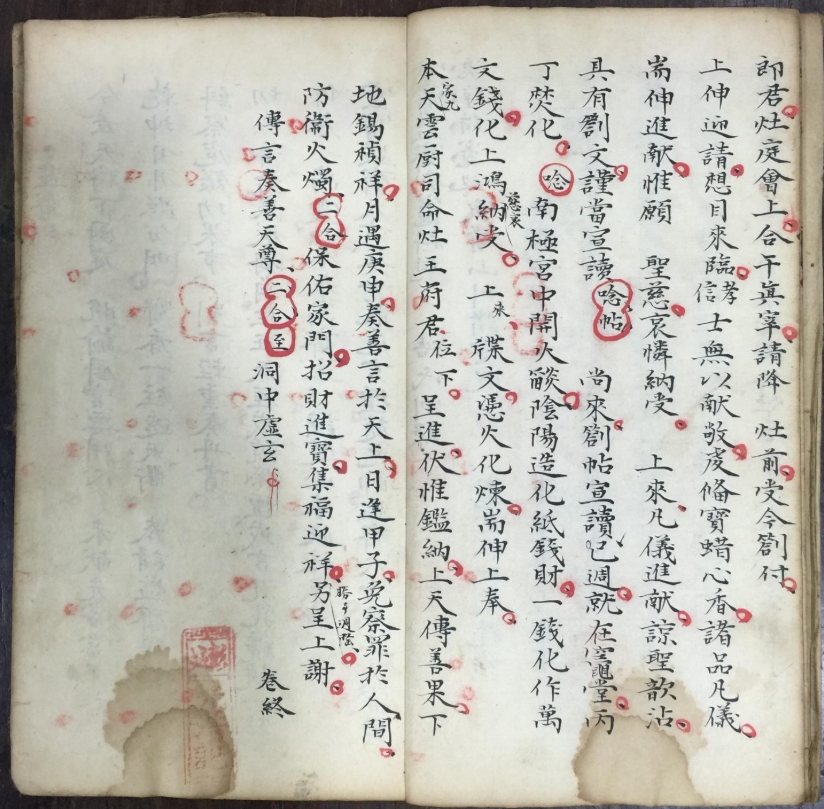 郎君灶庭會上合干真宰請降　灶前受今劄付
上伸迎請想目來臨孝信士無以献敬虔俻寶蜡心香諸品凡儀
耑伸進献惟願　聖慈哀憐納受　上來凡儀進献諒聖歆沾
具有劄文謹當宣讀唸帖　尚來劄帖宣讀已週就在竈堂丙
丁焚化唸南極宮中開火燄陰陽造化紙錢財一錢化作萬
文錢化上鴻慈哀納受　上來牒文憑火化煉耑伸上奉
本家九天雲厨司命灶王府君位下呈進伏惟鑑納上天傳善果下
地錫禎祥月遇庚申奏善言於天上日逢甲子免察罪於人間
防衛火燭二合保佑家門招財進寶集福迎祥另呈上謝
傳言奏善天尊二合至洞中虛玄　卷終